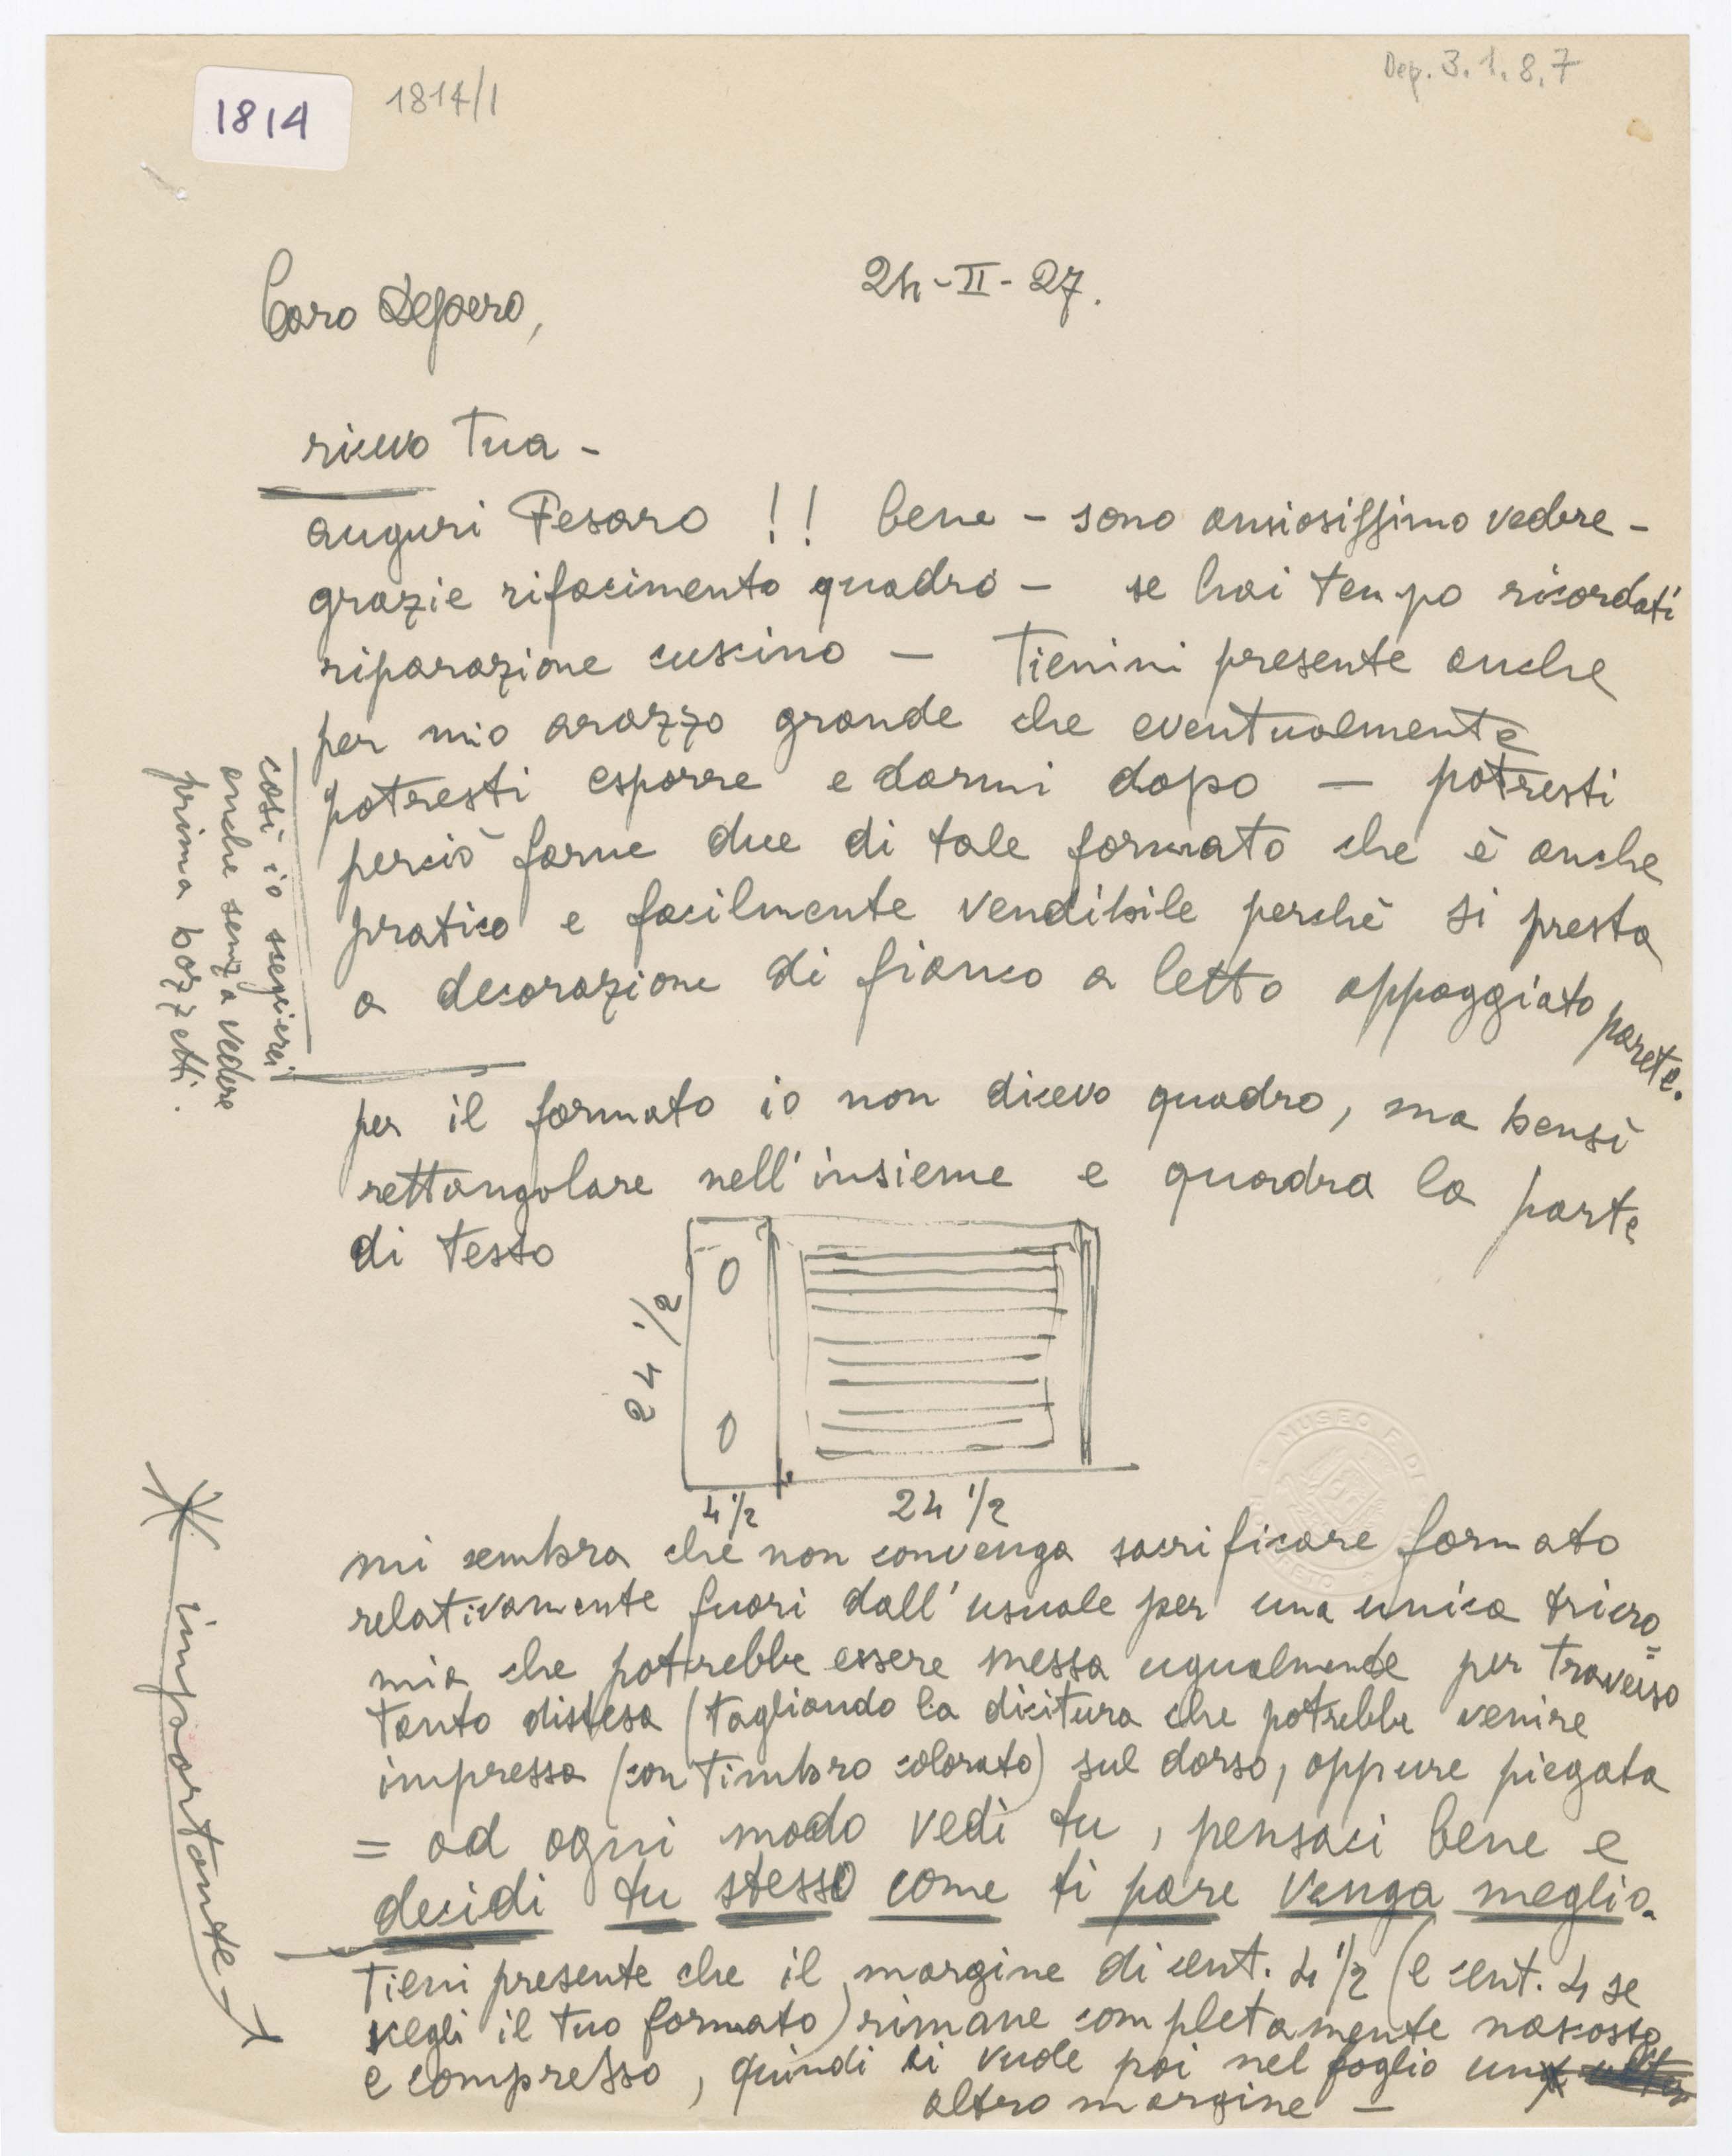 1814
1814/1
Dep. 3.1.8.7
Caro Depero,
24-II-27.
ricevo tua -
auguri Pesaro !! bene - sono ansiosissimo vedere -
grazie rifacimento quadro - se hai tempo ricordati
riparazione cuscino - Tienimi presente anche
per mio arazzo grande che eventualmente
potresti esporre e darmi dopo - potresti
perciò farne due di tale formato che è anche
pratico e facilmente vendibile perchè si presta
a decorazione di fianco a letto appoggiato parete.
così io sceglierei
anche senza vedere
prima bozzetti.
per il formato io non dicevo quadro, ma bensì
rettangolare nell'insieme e quadra la parte
di testo
24 1/2
4 1/2
24 1/2
mi sembra che non convenga sacrificare formato
relativamente fuori dall'usuale per una unica tricro=
mia che potrebbe essere messa ugualmente per traverso
tanto distesa (tagliando la dicitura che potrebbe venire
impressa (con timbro colorato) sul dorso, oppure piegata
= ad ogni modo vedi tu, pensaci bene e
decidi tu stesso come ti pare venga meglio.
importante
Tieni presente che il margine di cent. 4 1/2 (e cent. 4 se
scegli il tuo formato) rimane completamente nascosto
e compresso, quindi ci vuole poi nel foglio un
altro margine -
MUSEO